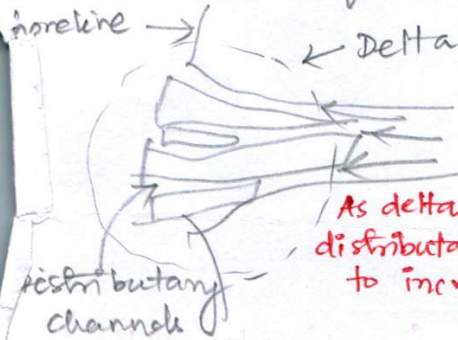 horeline
Delta
As delta
distributa
to incr
distributary
channels